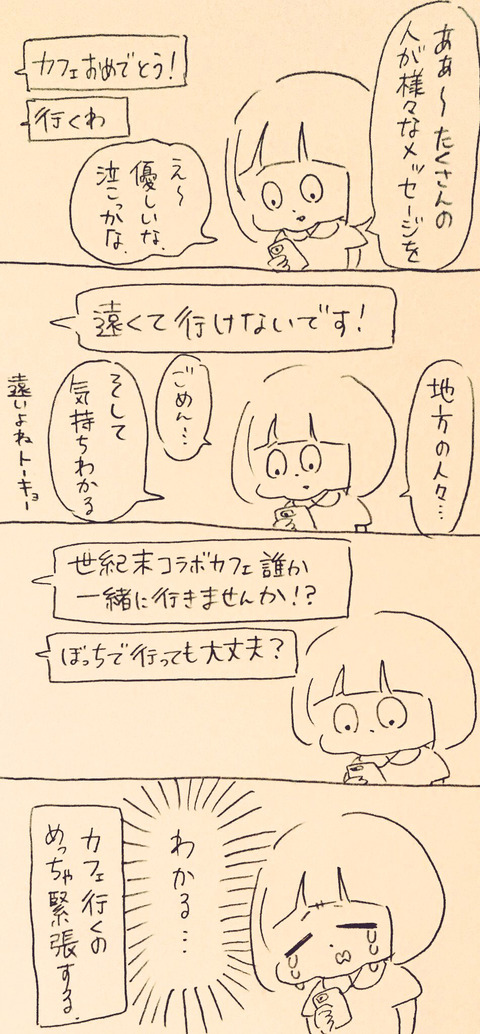 ああ〜たくさんの
人が様々なメッセージを
カフェおめでとう!
行くわ
え〜
優しいな.
泣こっかな.
地方の人々…
遠くて行けないです!
ごめん…
そして
気持ちわかる
遠いよねトーキョー
世紀末コラボカフェ誰か
一緒に行きませんか!?
ぼっちで行っても大丈夫?
わかる…
カフェ行くの
めっちゃ緊張する.